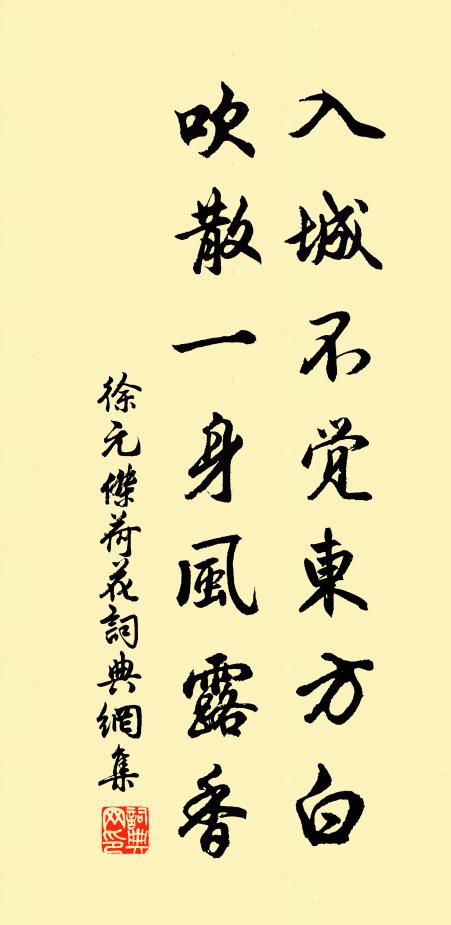 入城不觉東方白
吹散一身風露香
徐元傑荷花詞典網集
詞典网印